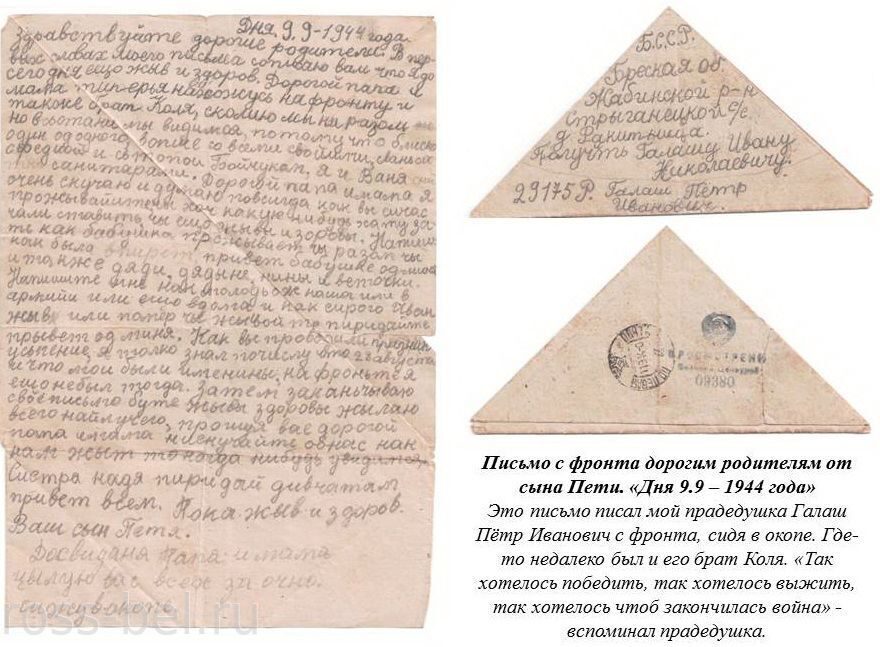 Дня 9.9-1944 года.
Здравствуйте дорогие родители. В пер-
вых словах моего письма сопщаю вам что я до
сегодня ещо жыв и здоров. Дорогой папа и
мама типерья нахожусь на фронту и
также брат Коля, сколию мы на разом
но востаки мы видимся, потому что близко
один одоного, вопше со всеми своими,
соседкой и Бойчукам, я и Ваня
санитарами. Дорогой папа и мама я
очень скучаю и думаю повсигда как вы сичас
проживайити хоч какую нибудь хату за-
чали ставить, чы ещо жывы и здоровы. Напиши-
те как бабушка проживает чы разам чы
как была привет бабушке од міня
и также дяди, дядьке, нины и веточки.
Напишите мне как молодьож наша или в
армии или ещо вдома и как Иван
жыв или
прывет од миня. Как вы проводили празник
успение, я только знал по числу што 28 августа
и что мои были именины, на фронте я
ещо небыл тогда. Затем заканьчываю
своё письмо буте жывы здоровы жылаю
всего найлучего, прощия вас дорогой
папа и мама нискучайте об нас как
нам жыт то когда нибудь увидимся
Систра надя пиридай дивчатам
привет всем. Пока жыв и здоров.
Ваш сын Петя.
Досвиданя папа и мама
цылую вас всех за очно.
сижу вокопе
ross-bel.ru
Б.С.С.Р.
Бресная об
Жабинской р-н
Стрыганецкой с/с
д Ракитница.
Получть Галашу Ивану
Николаевичу.
29175Р. Галаш Пётр
Иванович.
ПРОСМОТРЕНО
09380
Письмо с фронта дорогим родителям от
сына Пети. «Дня 9.9 – 1944 года»
Это письмо писал мой прадедушка Галаш
Пётр Иванович с фронта, сидя в окопе. Где-
то недалеко был и его брат Коля. «Так
хотелось победить, так хотелось выжить,
так хотелось чтоб закончилась война» -
вспоминал прадедушка.